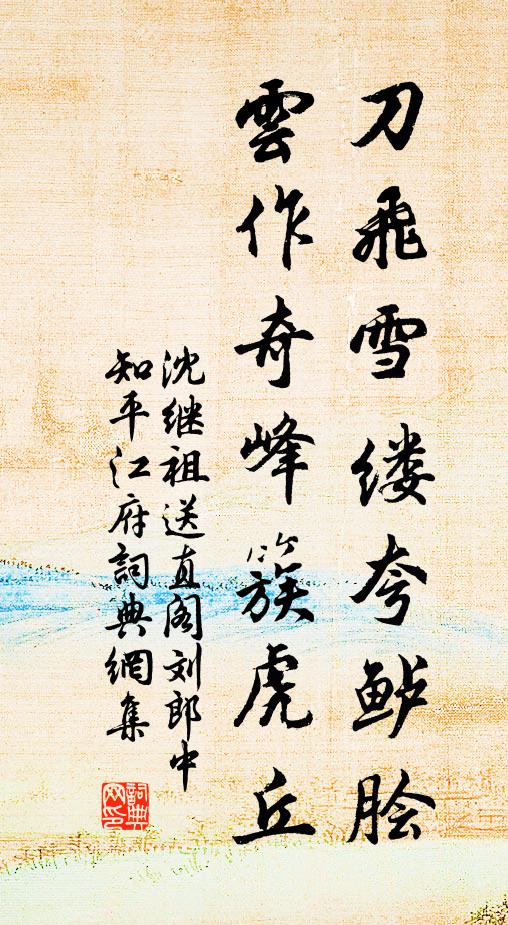 刀飛雪缕夸鲈脍
雲作奇峰簇虎丘
沈继祖送直阁刘郎中
知平江府詞典網集
詞典網印